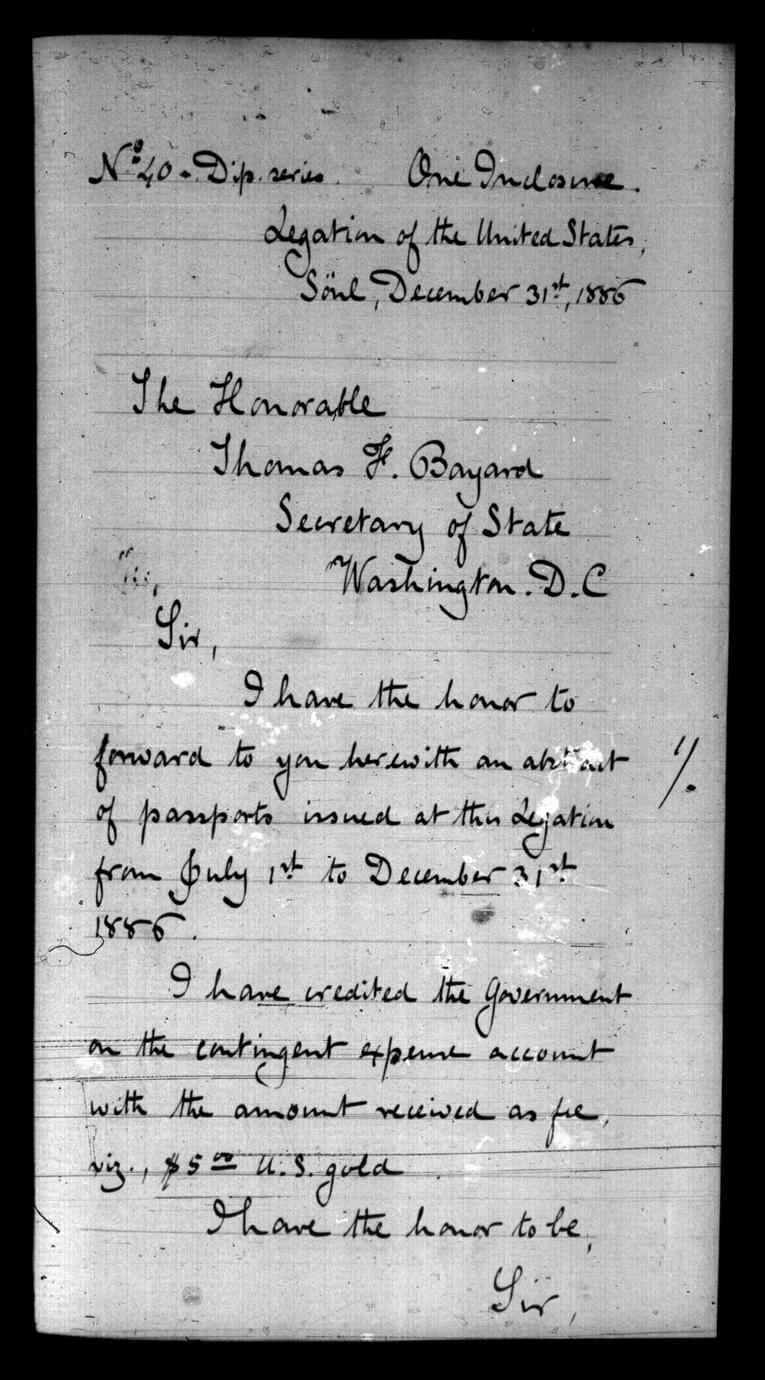 Nº 40 - Dip. series. One Inclosure.
Legation of the United States,
Söul, December 31st, 1886
The Honorable
Thomas F. Bayard
Secretary of State
Washington. D.C
Sir,
I have the honor to
forward to you herewith an abstract 1/.
of passports issued at this Legation
from July 1st to December 31st
1886.
I have credited the Government
on the contingent expense account
with the amount received as fee,
viz., $5 00 U.S. gold
I have the honor to be,
Sir,